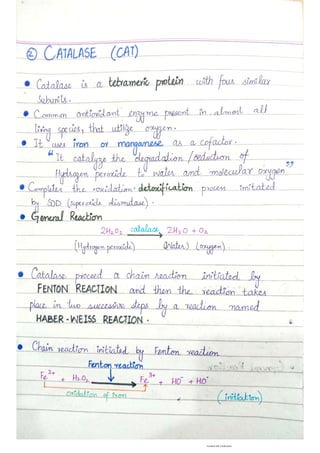 ② CATALASE (CAT)
• Catalase is a tetrameric protein with four similar
Subunits.
• Common antioxidant enzyme present in almost all
living species, that utilize oxygen.
• It uses iron or manganese as a cofactor.
" It catalyze the degradation / reduction of
Hydrogen peroxide to water and molecular oxygen "
• Completes the oxidation detoxification process imitated
by SOD (superoxide dismutase).
• General Reaction
2H2O2 catalase 2H2O + O2
(Hydrogen peroxide) (Water) (oxygen)
• Catalase proceed a chain reaction initiated by
FENTON REACTION and then the reaction takes
place in two successive steps by a reaction named
HABER-WEISS REACTION.
• Chain reaction initiated by Fenton reaction
Fenton reaction
Fe2+ + H2O2 Fe3+ + HO- + HO•
oxidation of iron (initiation)